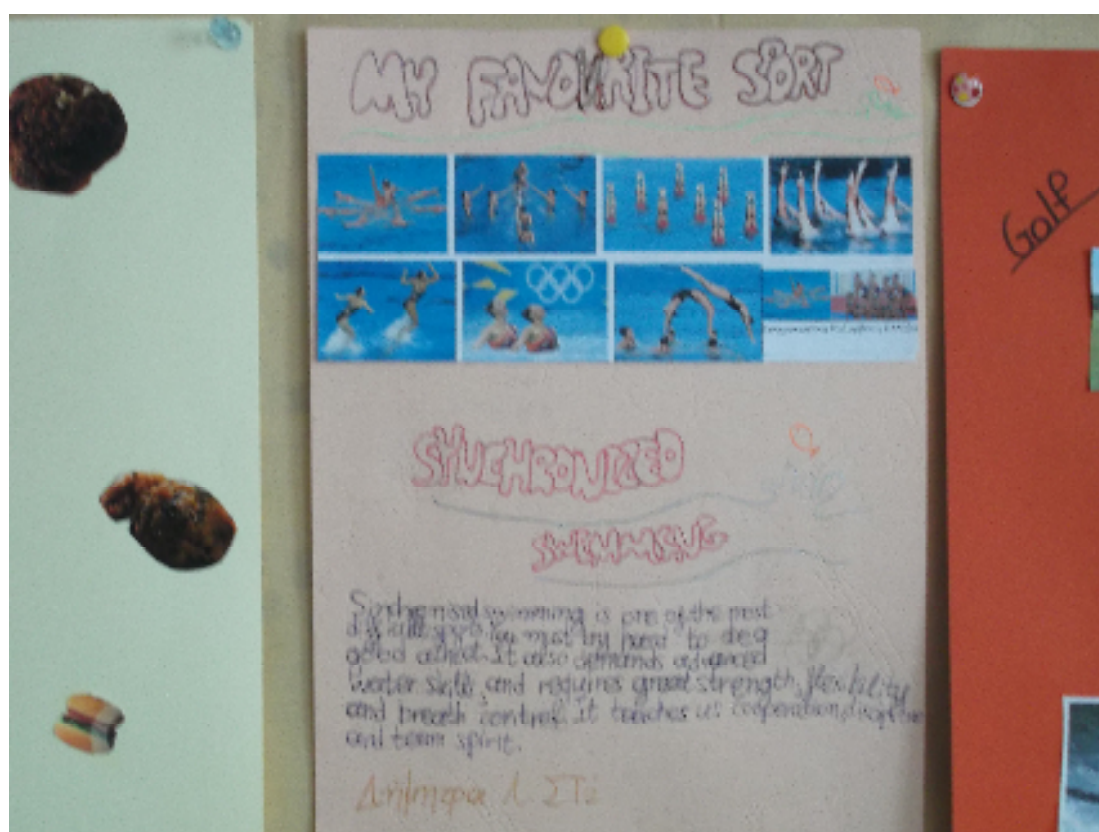 MY FAVOURITE SPORT
Golf
SYNCHRONIZED
SWIMMING
Synchronised swimming is one of the most
difficult sports. You must try hard to be a
good athlete. It also demands advanced
water skills, and requires great strength, flexibility
and breath control. It teaches us cooperation, discipline
and team spirit.
Δήμητρα Λ. ΣΤ2